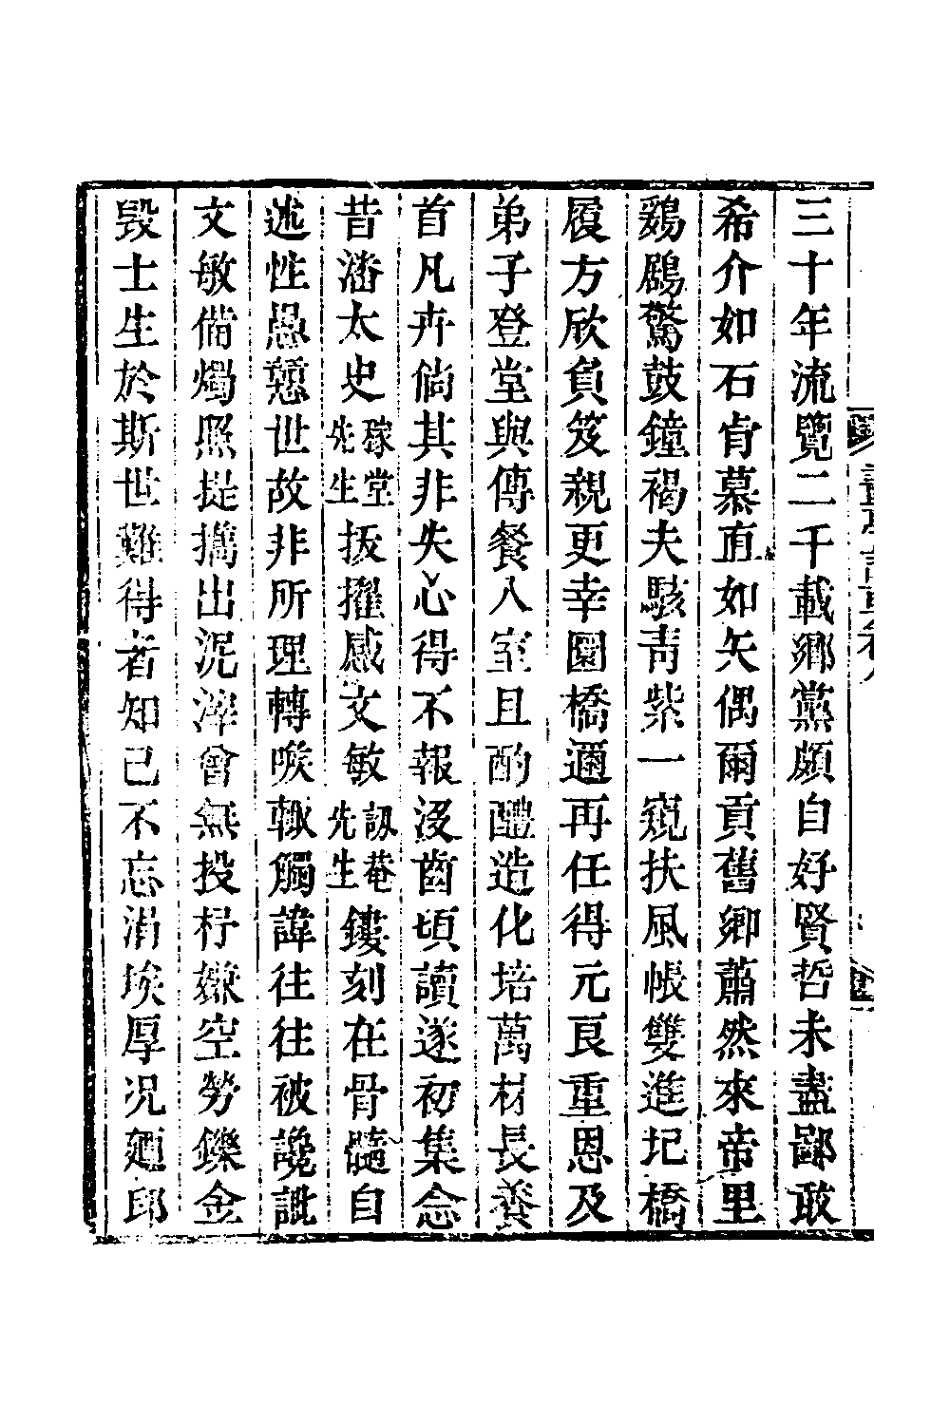 三十年流覽二千載鄉黨頗自好賢哲未盡鄙敢
希介如石肯慕直如矢偶爾貢舊鄉蕭然來帝里
鷄鶋驚鼓鐘褐夫駭靑紫一窺扶風帳雙進圯橋
履方欣負笈親更幸圜橋邇再任得元良重恩及
弟子登堂與傳餐入室且酌醴造化培萬材長養
首凡卉倘其非失心得不報沒齒頃讀遂初集念
昔潘太史稼堂先生拔擢感文敏訒菴先生鏤刻在骨髓自
述性愚戇世故非所理轉喉輒觸諱往往被讒訿
文敏備燭照提攜出泥滓曾無投杼嫌空勞鑠金
毀士生於斯世難得者知己不忘涓埃厚况廼邱